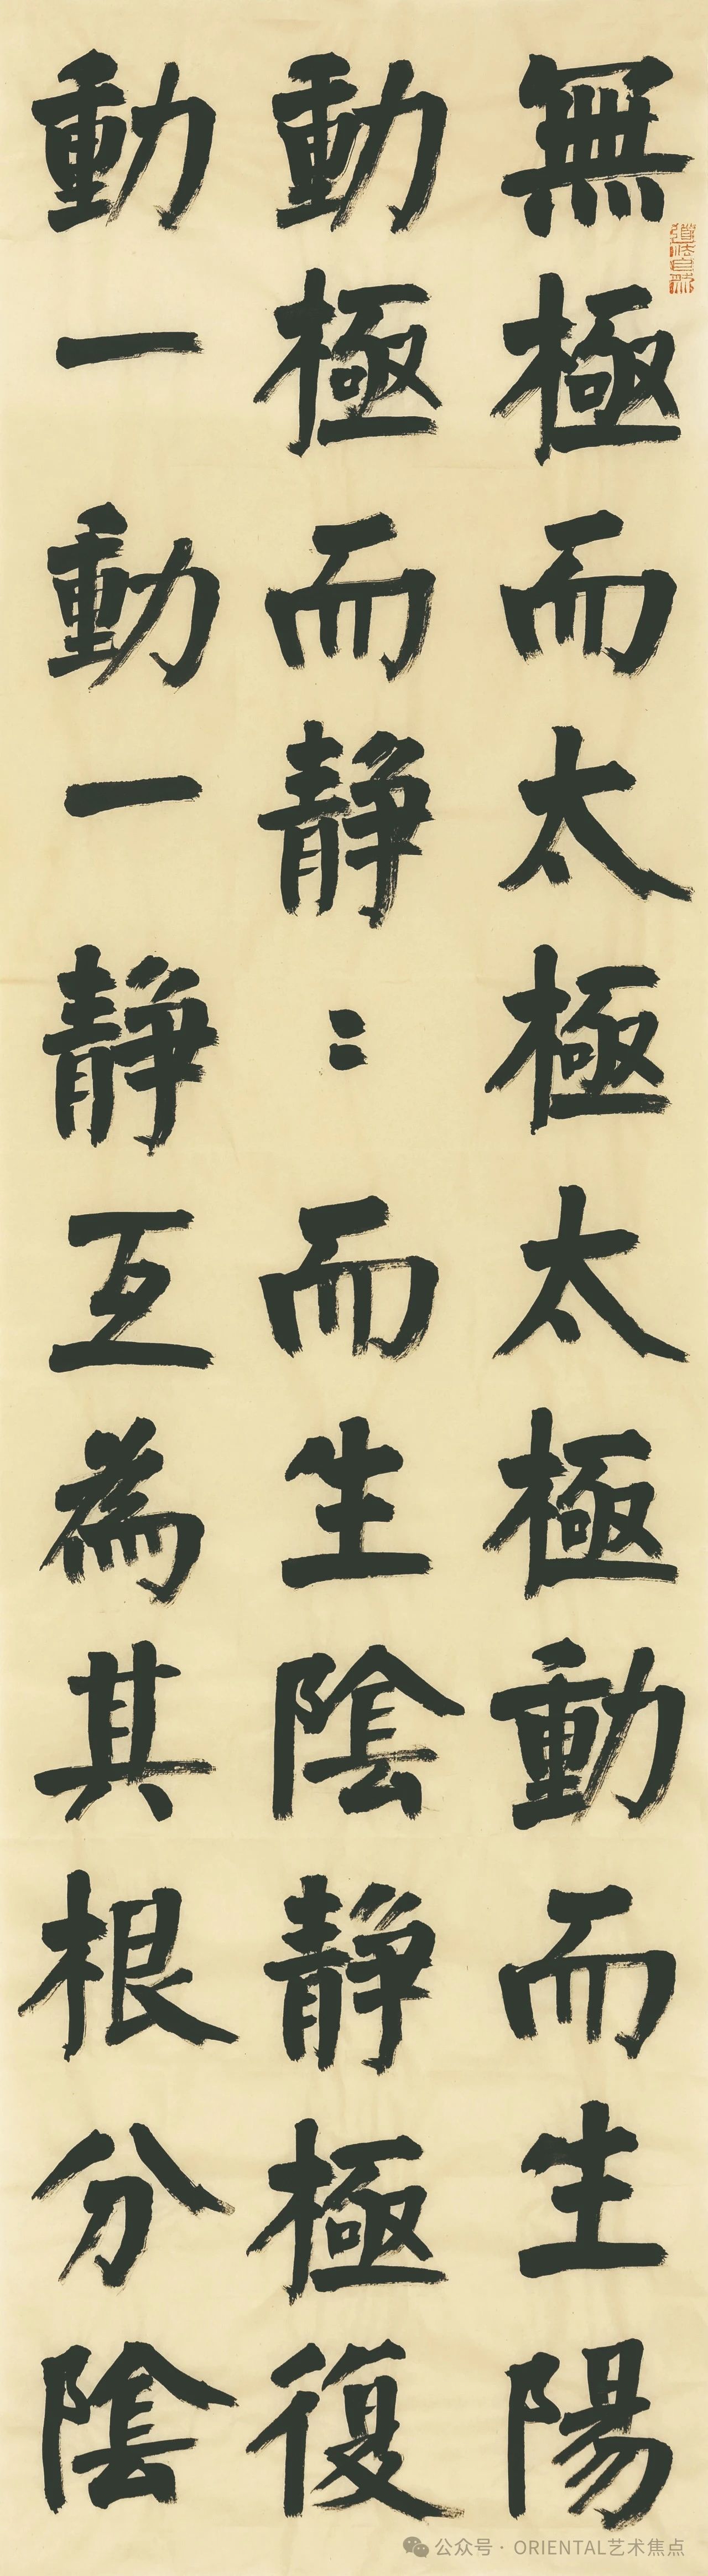 無極而太極太極動而生陽
動極而静〻而生陰静極復
動一動一静互為其根分陰
道法自然
公众号 · ORIENTAL艺术焦点